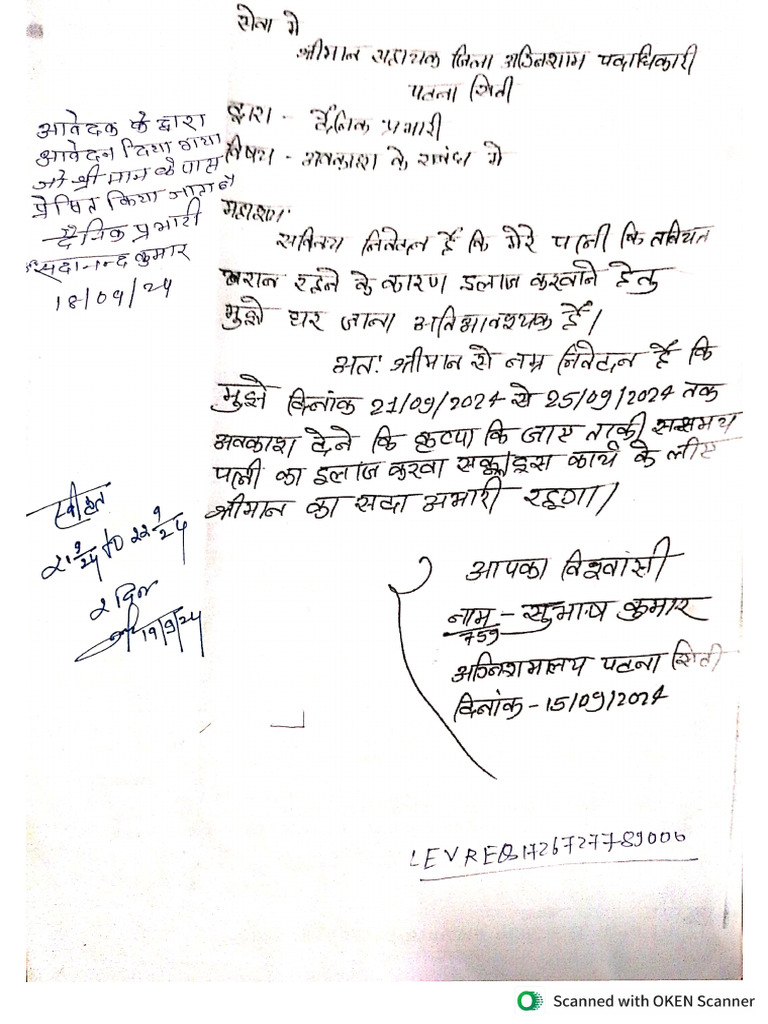 सेवा में
श्रीमान सहायक जिला अग्निशाम पदाधिकारी
पटना सिटी
द्वारा - दैनिक प्रभारी
विषय - अवकाश के संबंध में
महाशय
सविनय निवेदन है कि मेरे पत्नी कि तबियत
खराब रहने के कारण इलाज करवाने हेतु
मुझे घर जाना अतिआवश्यक है।
अतः श्रीमान से नम्र निवेदन है कि
मुझे दिनांक 21/09/2024 से 25/09/2024 तक
अवकाश देने कि कृप्या कि जाए ताकी ससमय
पत्नी का इलाज करवा सकू इस कार्य के लीए
श्रीमान का सदा अभारी रहूगा।
आपका विश्वासी
नाम - सुभाष कुमार
759
अग्निशमालय पटना सिटी
दिनांक - 15/09/2024
आवेदक के द्वारा
आवेदन दिया गया
जो श्री मान के पास
प्रेषित किया जाता है
दैनिक प्रभारी
सदानन्द कुमार
18/09/24
स्वीकृत
21 9/24 to 22 9/24
2 दिन
19/9/24
LEVREQ1726727789006
Scanned with OKEN Scanner